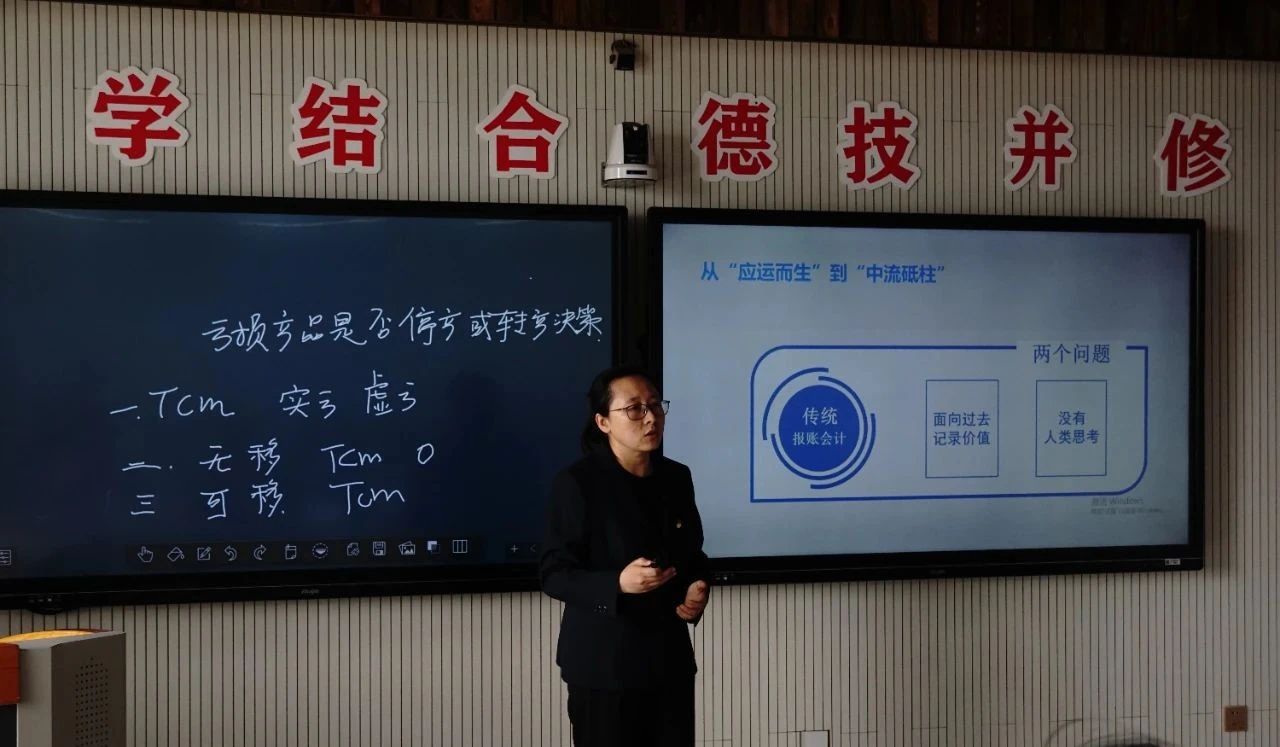 学结合 德技并修
亏损产品是否停产或转产决策
一.Tcm 实亏 虚亏
二.无移 Tcm 0
三 可移 Tcm
从“应运而生”到“中流砥柱”
两个问题
传统
报账会计
面向过去
记录价值
没有
人类思考
激活 Windows